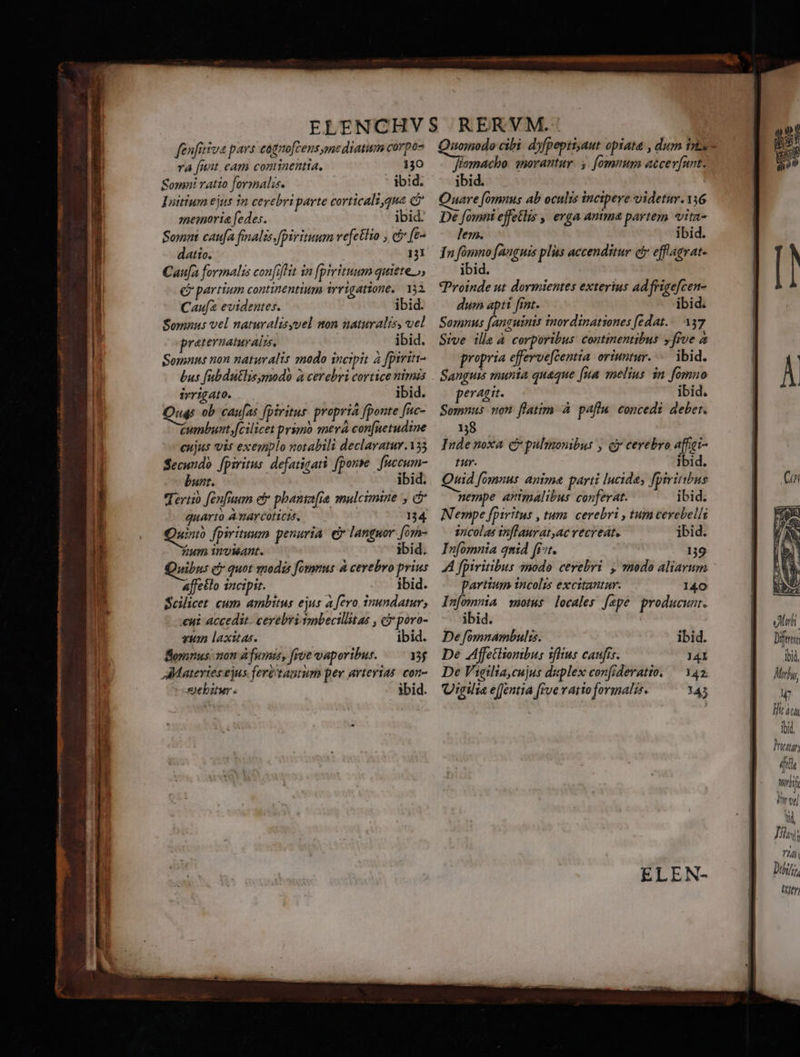 ELENCHVS RERVM.
ſenſitiva pars cognoſcens, mediatum corpo-
ra ſunt eam continentia. 130
Somni ratio formalis. ibid.
Initium ejus in cerebri parte corticali, quæ &
memoriæ ſedes. ibid.
Somni cauſa finalis, ſpirituum refectio, & ſe-
datio. 131
Cauſa formalis conſiſtit in ſpirituum quiete,
& partium continentium irrigatione. 132
Cauſæ evidentes. ibid.
Somnus vel naturalis, vel non naturalis, vel
præternaturalis. ibid.
Somnus non naturalis modo incipit à ſpiriti-
bus ſubductis, modò à cerebri cortice nimis
irrigato. ibid.
Quas ob cauſas ſpiritus propriâ ſponte ſuc-
cumbunt, ſcilicet primò merâ conſuetudine
cujus vis exemplo notabili declaratur. 133
Secundò ſpiritus defatigati ſponte ſuccum-
bunt. ibid.
Tertiò ſenſuum & phantaſiæ mulcimine, &
quartò à narcoticis. 134
Quintò ſpirituum penuria & languor ſom-
num invitant. ibid.
Quibus & quot modis ſomnus à cerebro prius
affecto incipit. ibid.
Scilicet cum ambitus ejus à ſero inundatur,
cui accedit cerebri imbecillitas, & poro-
rum laxitas. ibid.
Somnus non à fumis, ſive vaporibus. 135
Materies ejus ferè tantum per arterias con-
vehitur. ibid.
Quomodo cibi dyſpepti, aut opiata, dum in
ſtomacho morantur, ſomnum accerſunt.
ibid.
Quare ſomnus ab oculis incipere videtur. 136
De ſomni effectis, erga animæ partem vita-
lem. ibid.
In ſomno ſanguis plùs accenditur & efflagrat.
ibid.
Proinde ut dormientes exterius ad frigeſcen-
dum apti ſint. ibid.
Somnus ſanguinis inordinationes ſedat. 137
Sive illæ à corporibus continentibus, ſive à
propria efferveſcentia oriuntur. ibid.
Sanguis munia quæque ſua melius in ſomno
peragit. ibid.
Somnus non ſtatim à paſtu concedi debet.
138
Inde noxa & pulmonibus, & cerebro affigi-
tur. ibid.
Quid ſomnus animæ parti lucidæ, ſpiritibus
nempe animalibus conferat. ibid.
Nempe ſpiritus, tum cerebri, tum cerebelli
incolas inſtaurat, ac recreat. ibid.
Inſomnia quid ſint. 139
A ſpiritibus modo cerebri, modo aliarum
partium incolis excitantur. 140
Inſomnia motus locales ſæpe producunt.
ibid.
De ſomnambulis. ibid.
De Affectionibus iſtius cauſis. 141
De Vigilia, cujus duplex conſideratio. 142
Vigiliæ eſſentia ſive ratio formalis. 143
ELEN-